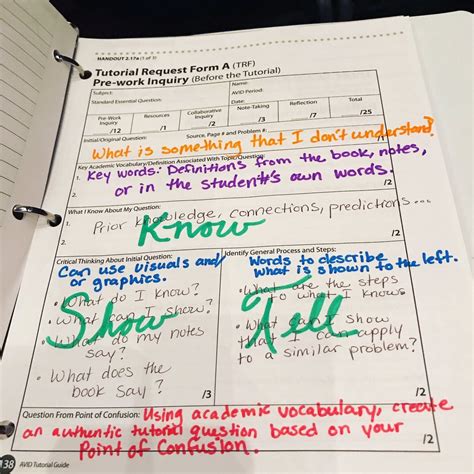 HANDOUT 2.17a (1 of 3)
Tutorial Request Form A (TRF)
Pre-work Inquiry (Before the Tutorial)
Subject: Name:
Standard Essential Question: AVID Period:
Pre-Work Inquiry Resources Collaborative Inquiry Note-Taking Reflection Total
/12 /1 /2 /3 /7 /25
Initial/Original Question: Source, Page # and Problem #:
What is something that I don't understand?
Key Academic Vocabulary/Definition Associated With Topic/Question:
1. Key words: Definitions from the book, notes,
2. or in the student's own words.
/2
What I Know About My Question:
1. Prior knowledge, connections, predictions...
Know
2.
/2
Critical Thinking About Initial Question:
Can use visuals and/
or graphics.
• What do I know?
• What can I show?
• What do my notes
say?
• What does the
book say?
Show
/3
Identify General Process and Steps:
Words to describe
what is shown to the left.
• What are the steps
to what I know?
• What can I show
that I can apply
to a similar problem?
Tell
/2
Question From Point of Confusion: Using academic vocabulary, create
an authentic tutorial question based on your
Point of Confusion.
/2
138 AVID Tutorial Guide